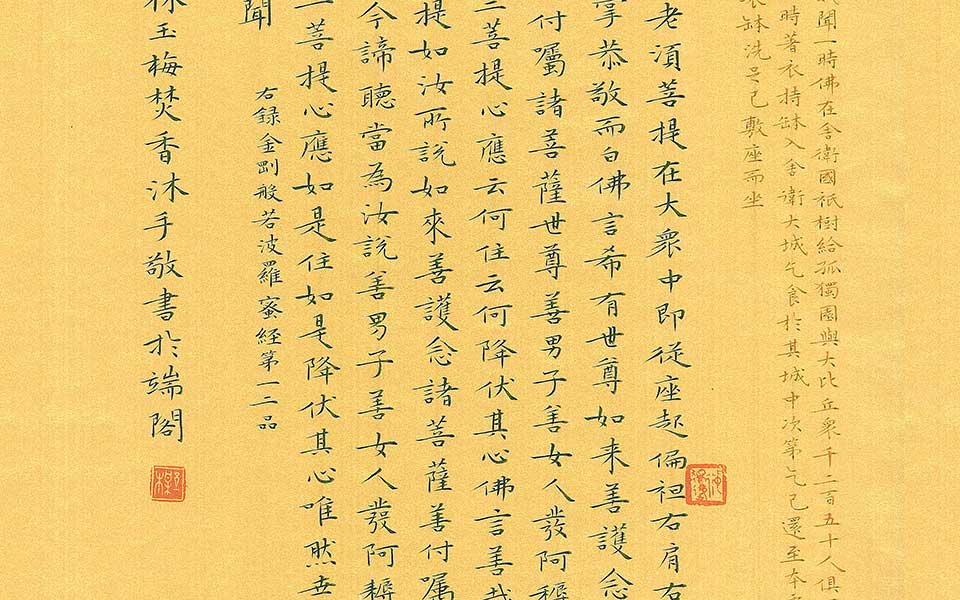 我聞一時佛在舍衛國祇樹給孤獨園與大比丘衆千二百五十人俱
時著衣持鉢入舍衛大城乞食於其城中次第乞已還至本
衣鉢洗足已敷座而坐
老湏菩提在大衆中即從座起偏袒右肩右
掌恭敬而白佛言希有世尊如来善護念
付囑諸菩薩世尊善男子善女人發阿耨
三菩提心應云何住云何降伏其心佛言善哉
提如汝所說如來善護念諸菩薩善付囑
今諦聽當為汝說善男子善女人發阿耨
菩提心應如是住如是降伏其心唯然世
聞
右錄金剛般若波羅蜜經第一二品
玉梅焚香沐手敬書於端閣